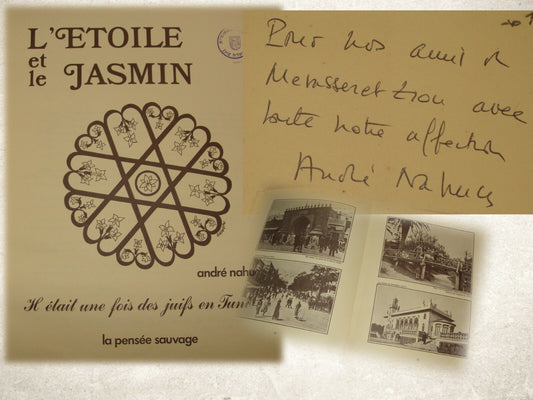 L'ETOILE
et
le JASMIN
andré
Il était une fois des juifs en
la pensée sauvage
Pour nos amis
et Zion avec
toute notre affection
André Nahum